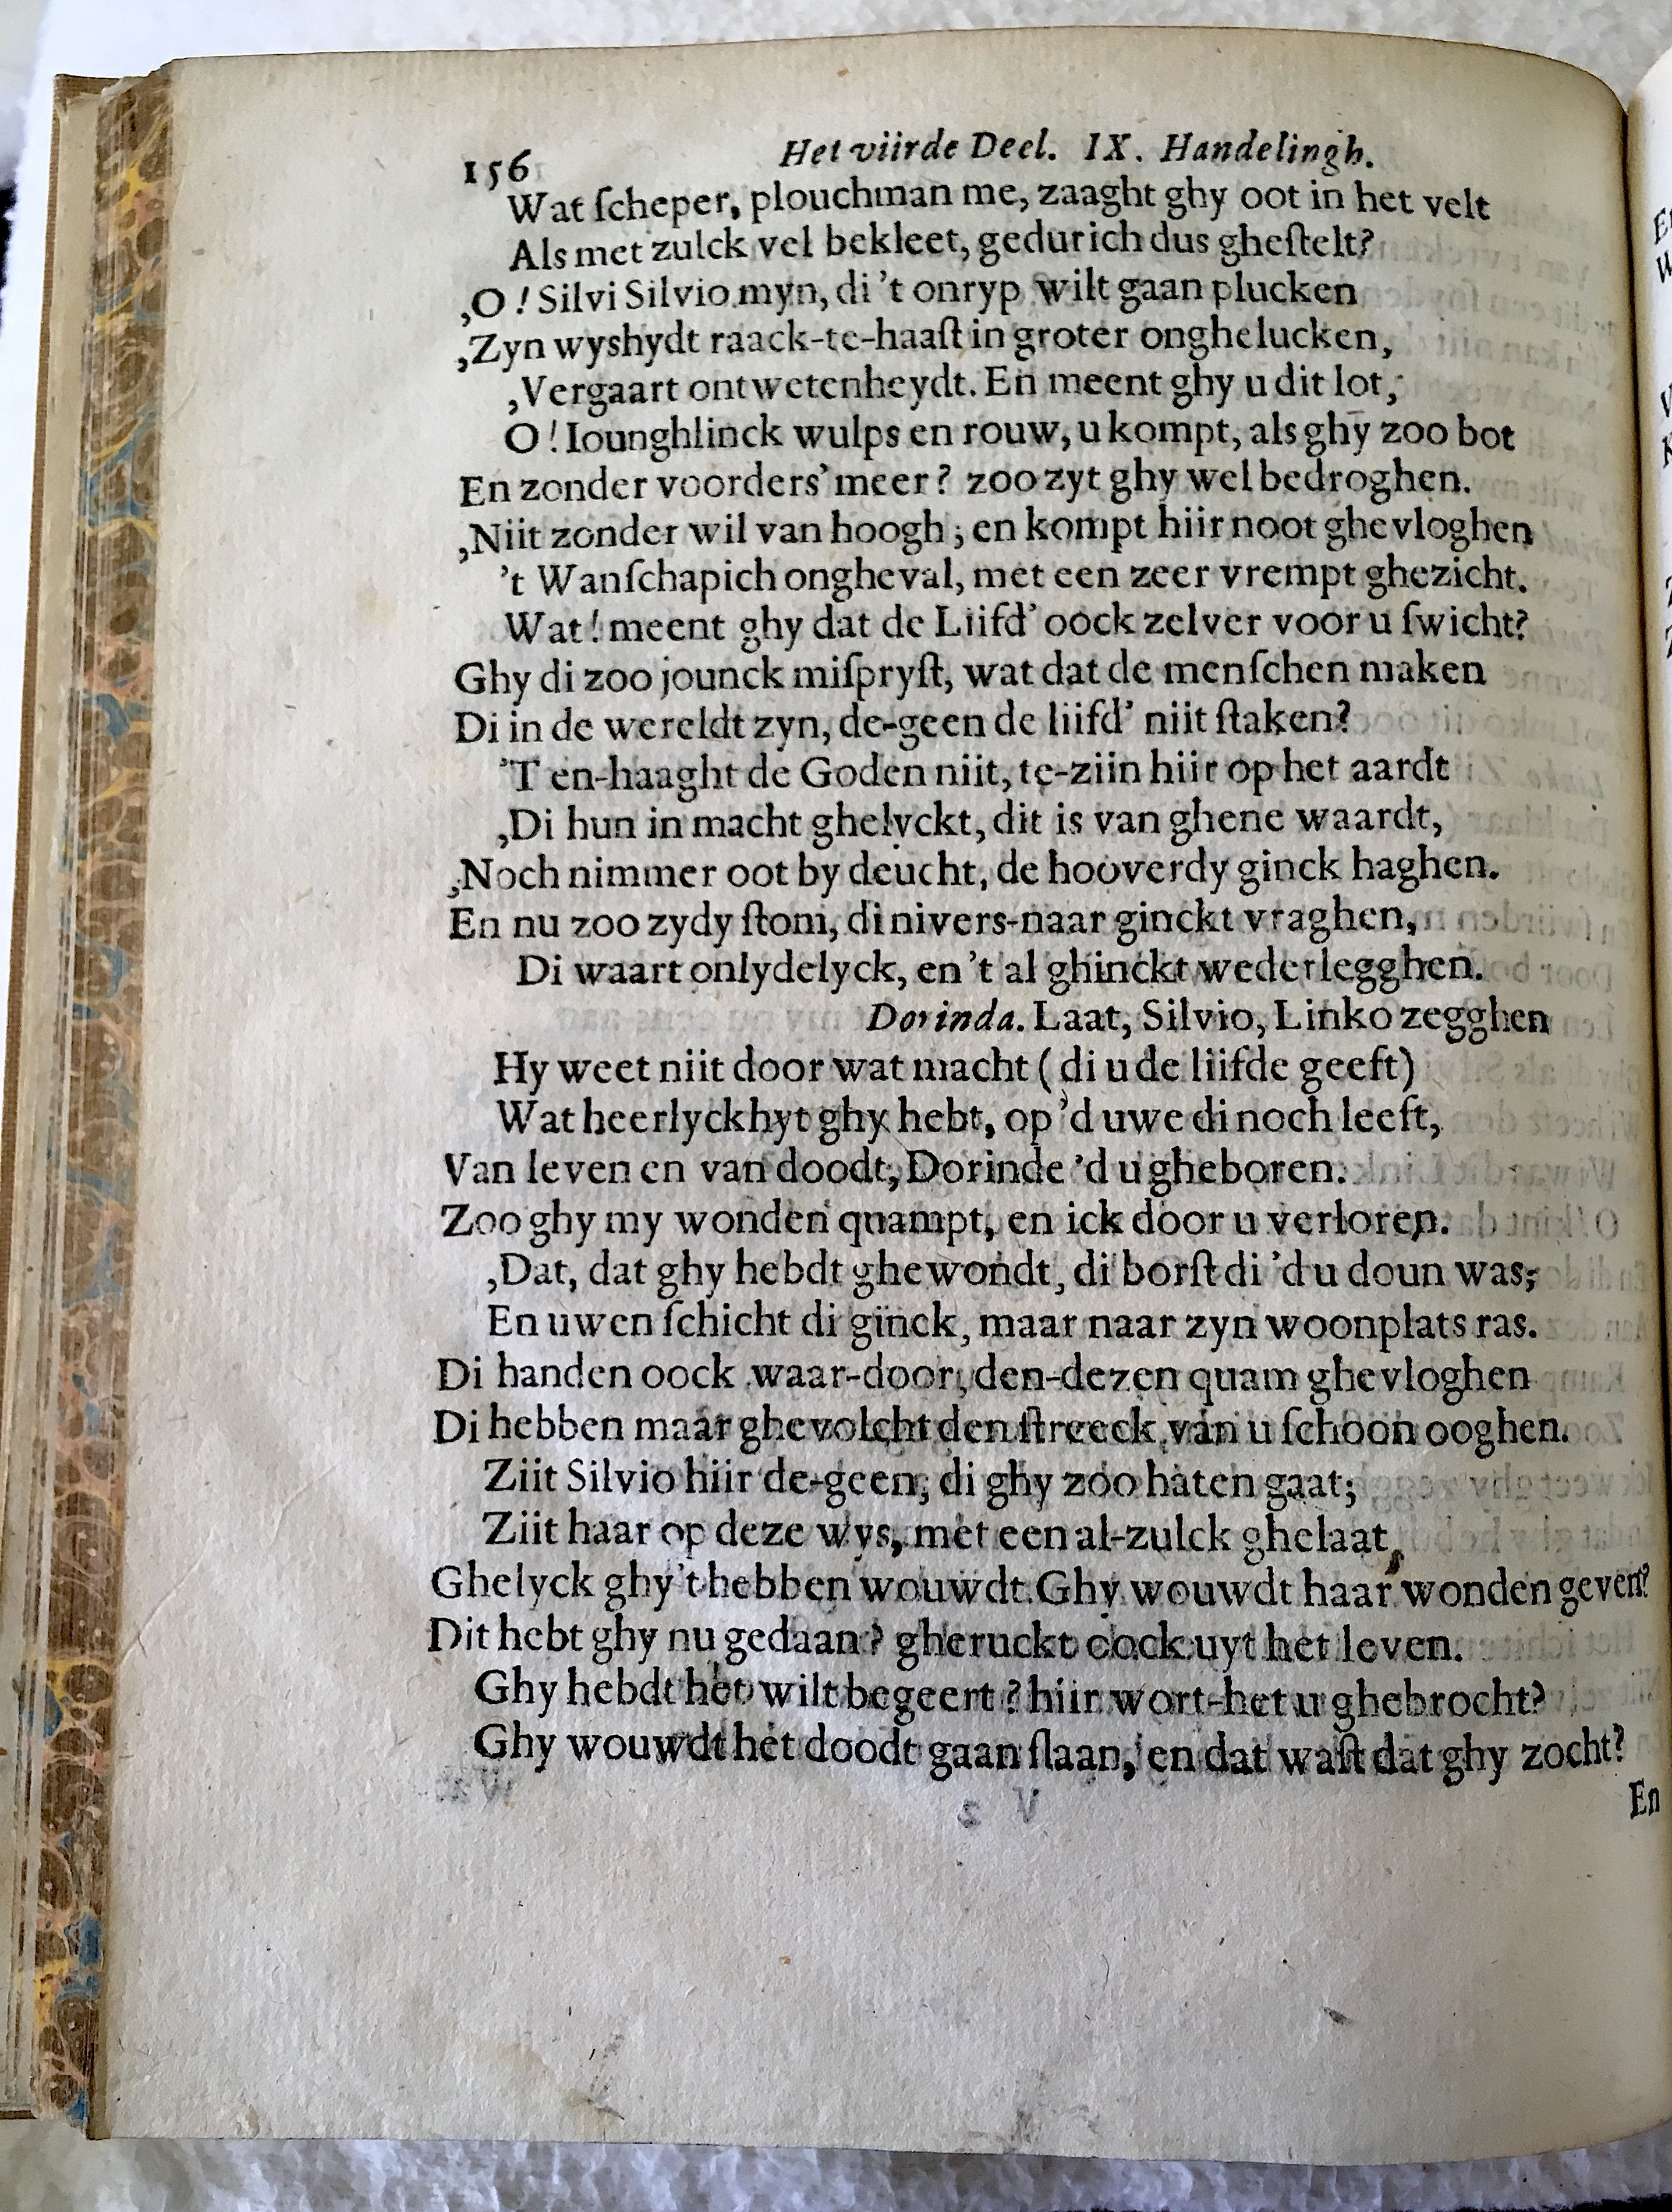 156 Het viirde Deel. IX. Handelingh.
Wat ſcheper, plouchman me, zaaght ghy oot in het velt
Als met zulck vel bekleet, gedurich dus gheſtelt?
,O! Silvi Silvio myn, di 't onryp wilt gaan plucken
,Zyn wyshydt raack-te-haaſt in groter onghelucken,
,Vergaart ontwetenheydt. En meent ghy u dit lot,
O! Iounghlinck wulps en rouw, u kompt, als ghy zoo bot
En zonder voorders' meer? zoo zyt ghy wel bedroghen.
,Niit zonder wil van hoogh; en kompt hiir noot ghevloghen
't Wanſchapich ongheval, met een zeer vrempt ghezicht.
Wat! meent ghy dat de Liifd' oock zelver voor u ſwicht?
Ghy di zoo jounck miſpryſt, wat dat de menſchen maken
Di in de wereldt zyn, de-geen de liifd' niit ſtaken?
'T en-haaght de Goden niit, te-ziin hiir op het aardt
,Di hun in macht ghelyckt, dit is van ghene waardt,
,Noch nimmer oot by deucht, de hooverdy ginck haghen.
En nu zoo zydy ſtom, di nivers-naar ginckt vraghen,
Di waart onlydelyck, en 't al ghinckt wederlegghen.
Dorinda. Laat, Silvio, Linko zegghen
Hy weet niit door wat macht (di u de liifde geeft)
Wat heerlyckhyt ghy hebt, op 'd uwe di noch leeft,
Van leven en van doodt, Dorinde 'd u gheboren.
Zoo ghy my wonden quampt, en ick door u verloren.
,Dat, dat ghy hebdt ghewondt, di borſt di 'd u doun was,
En uwen ſchicht di ginck, maar naar zyn woonplats ras.
Di handen oock waar-door, den-dezen quam ghevloghen
Di hebben maar ghevolcht den ſtreeck van u ſchoon ooghen.
Ziit Silvio hiir de-geen, di ghy zoo haten gaat;
Ziit haar op deze wys, met een al-zulck ghelaat,
Ghelyck ghy 't hebben wouwdt. Ghy wouwdt haar wonden geven?
Dit hebt ghy nu gedaan? gheruckt oock uyt het leven.
Ghy hebdt het wilt begeert? hiir wort-het u ghebrocht?
Ghy wouwdt het doodt gaan ſlaan, en dat waſt dat ghy zocht?
En